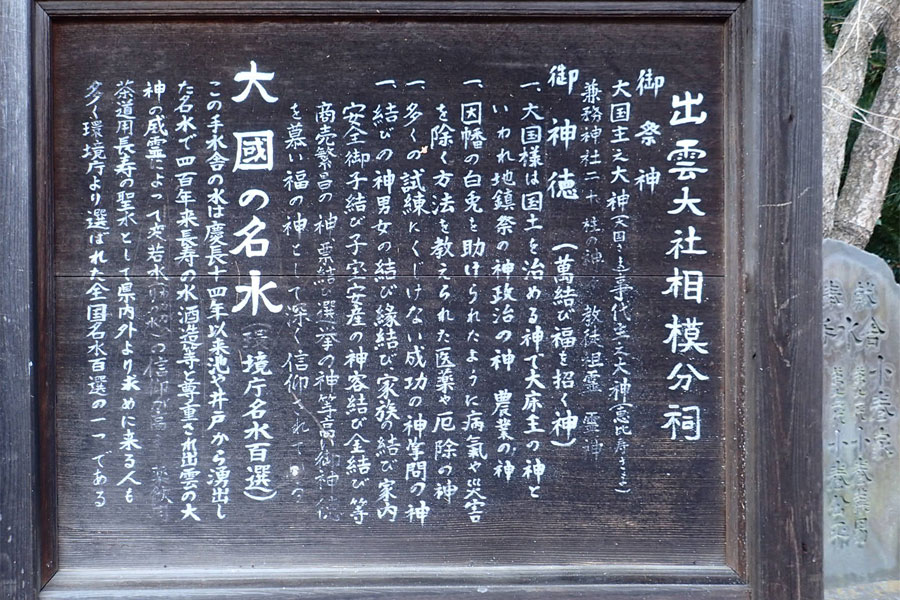 出雲大社相模分祠
御祭神
大国主之大神(大国さま)事代主之大神(恵比寿さま)
兼務神社二十 柱の神 教徒祖霊 霊神
御神徳 (萬結び福を招く神)
一、大国様は国土を治める神で大床主の神と
いわれ地鎮祭の神政治の神 農業の神
一、因幡の白兎を助けられたように病氣や災害
を除く方法を教えられた医薬や厄除の神
一、多くの試練にくじけない成功の神学問の神
一、結びの神男女の結び縁結び、家族の結び家内
安全御子結び子宝安産の神客結び金結び等
商売繁昌の神票結び選挙の神等高い御神徳
を慕い福の神として深く信仰されて
大國の名水(環境庁名水百選)
この手水舎の水は慶長十四年以来池や井戸から湧出し
た名水で四百年来長寿の水酒造等尊重され出雲の大
神の威霊によって若水 の信仰が高
茶道用長寿の聖水として県内外より求めに来る人も
多く環境庁より選ばれた全国名水百選の一つである